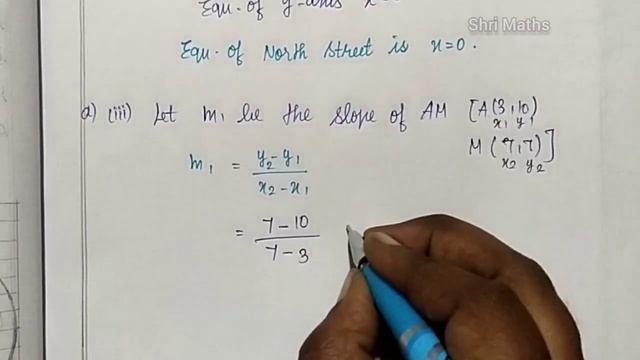 Equ. of y-axis x=0
Shri Maths
Equ. of North Street is x=0.
a) (iii) Let m₁ be the slope of AM [A(3,10)
x₁ y₁
M(7,7)]
x₂ y₂
m₁ = y₂-y₁ / x₂-x₁
= 7-10 / 7-3